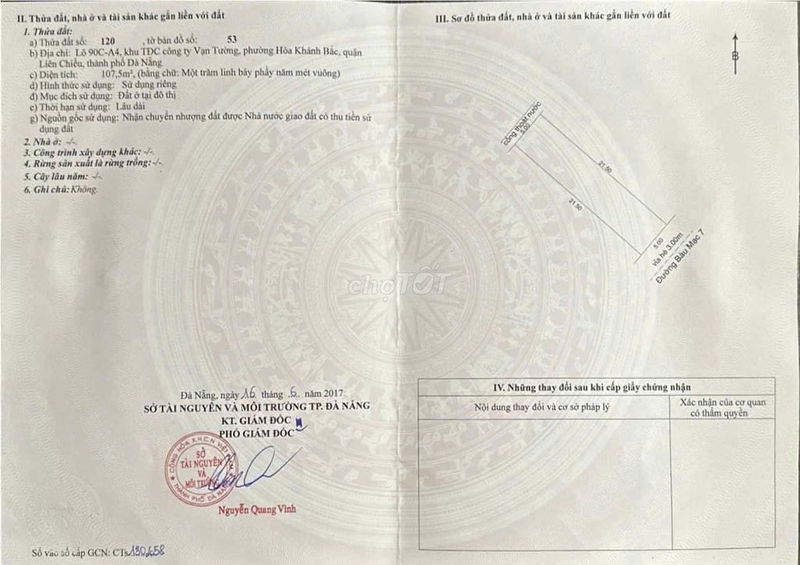 II. Thửa đất, nhà ở và tài sản khác gắn liền với đất
1. Thửa đất:
a) Thửa đất số: 120 , tờ bản đồ số: 53
b) Địa chỉ: Lô 90C-A4, khu TĐC công ty Vạn Tường, phường Hòa Khánh Bắc, quận
Liên Chiểu, thành phố Đà Nẵng
c) Diện tích: 107,5m², (bằng chữ: Một trăm linh bảy phẩy năm mét vuông)
d) Hình thức sử dụng: Sử dụng riêng
đ) Mục đích sử dụng: Đất ở tại đô thị
e) Thời hạn sử dụng: Lâu dài
g) Nguồn gốc sử dụng: Nhận chuyển nhượng đất được Nhà nước giao đất có thu tiền sử
dụng đất
2. Nhà ở: -/-
3. Công trình xây dựng khác: -/-
4. Rừng sản xuất là rừng trồng: -/-
5. Cây lâu năm: -/-
6. Ghi chú: Không.
Đà Nẵng, ngày 16 tháng 6 năm 2017
SỞ TÀI NGUYÊN VÀ MÔI TRƯỜNG TP. ĐÀ NẴNG
KT. GIÁM ĐỐC
PHÓ GIÁM ĐỐC
CỘNG HÒA X.H.C.N VIỆT NAM
SỞ
TÀI NGUYÊN
VÀ
MÔI TRƯỜNG
THÀNH PHỐ ĐÀ NẴNG
Nguyễn Quang Vinh
Số vào sổ cấp GCN: CTs 130658
III. Sơ đồ thửa đất, nhà ở và tài sản khác gắn liền với đất
B
cống thoát nước
5.00
21.50
21.50
5.00
vỉa hè 3.00m
Đường Bàu Mạc 7
chợTỐT
IV. Những thay đổi sau khi cấp giấy chứng nhận
Nội dung thay đổi và cơ sở pháp lý
Xác nhận của cơ quan
có thẩm quyền